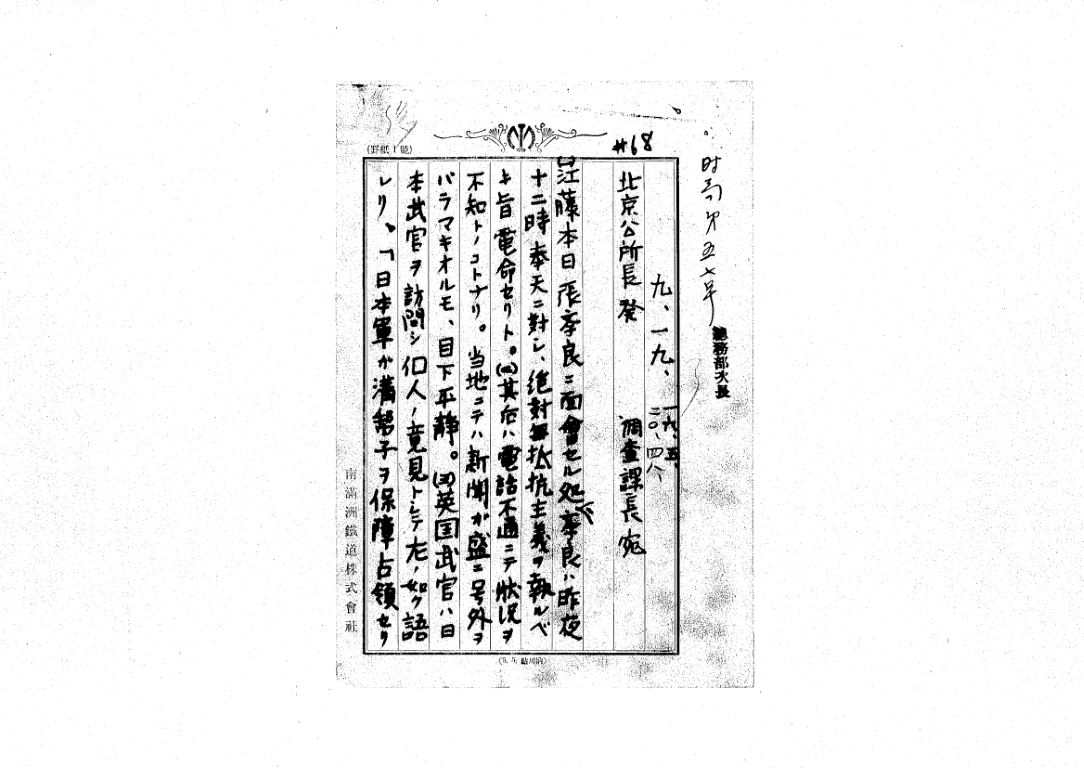 #68
時局第五七号
総務部次長
九、一九、一九、五、
二〇、四八
北京公所長発 調査課長宛
江藤本日張学良ニ面會セル処学良ハ昨夜
十二時奉天ニ對シ、絶対無抵抗主義ヲ執ルベ
キ旨電命セリト。(二)其后ハ電話不通ニテ状況ヲ
不知トノコトナリ。当地ニテハ新聞ガ盛ニ号外ヲ
バラマキオルモ、目下平静。(三)英国武官ハ日
本武官ヲ訪問シ個人ノ意見トシテ左ノ如ク語
レリ、「日本軍ガ溝幇子ヲ保障占領セリ
(野紙1號)
南滿洲鐵道株式會社
(5. 5. 鮎川納)